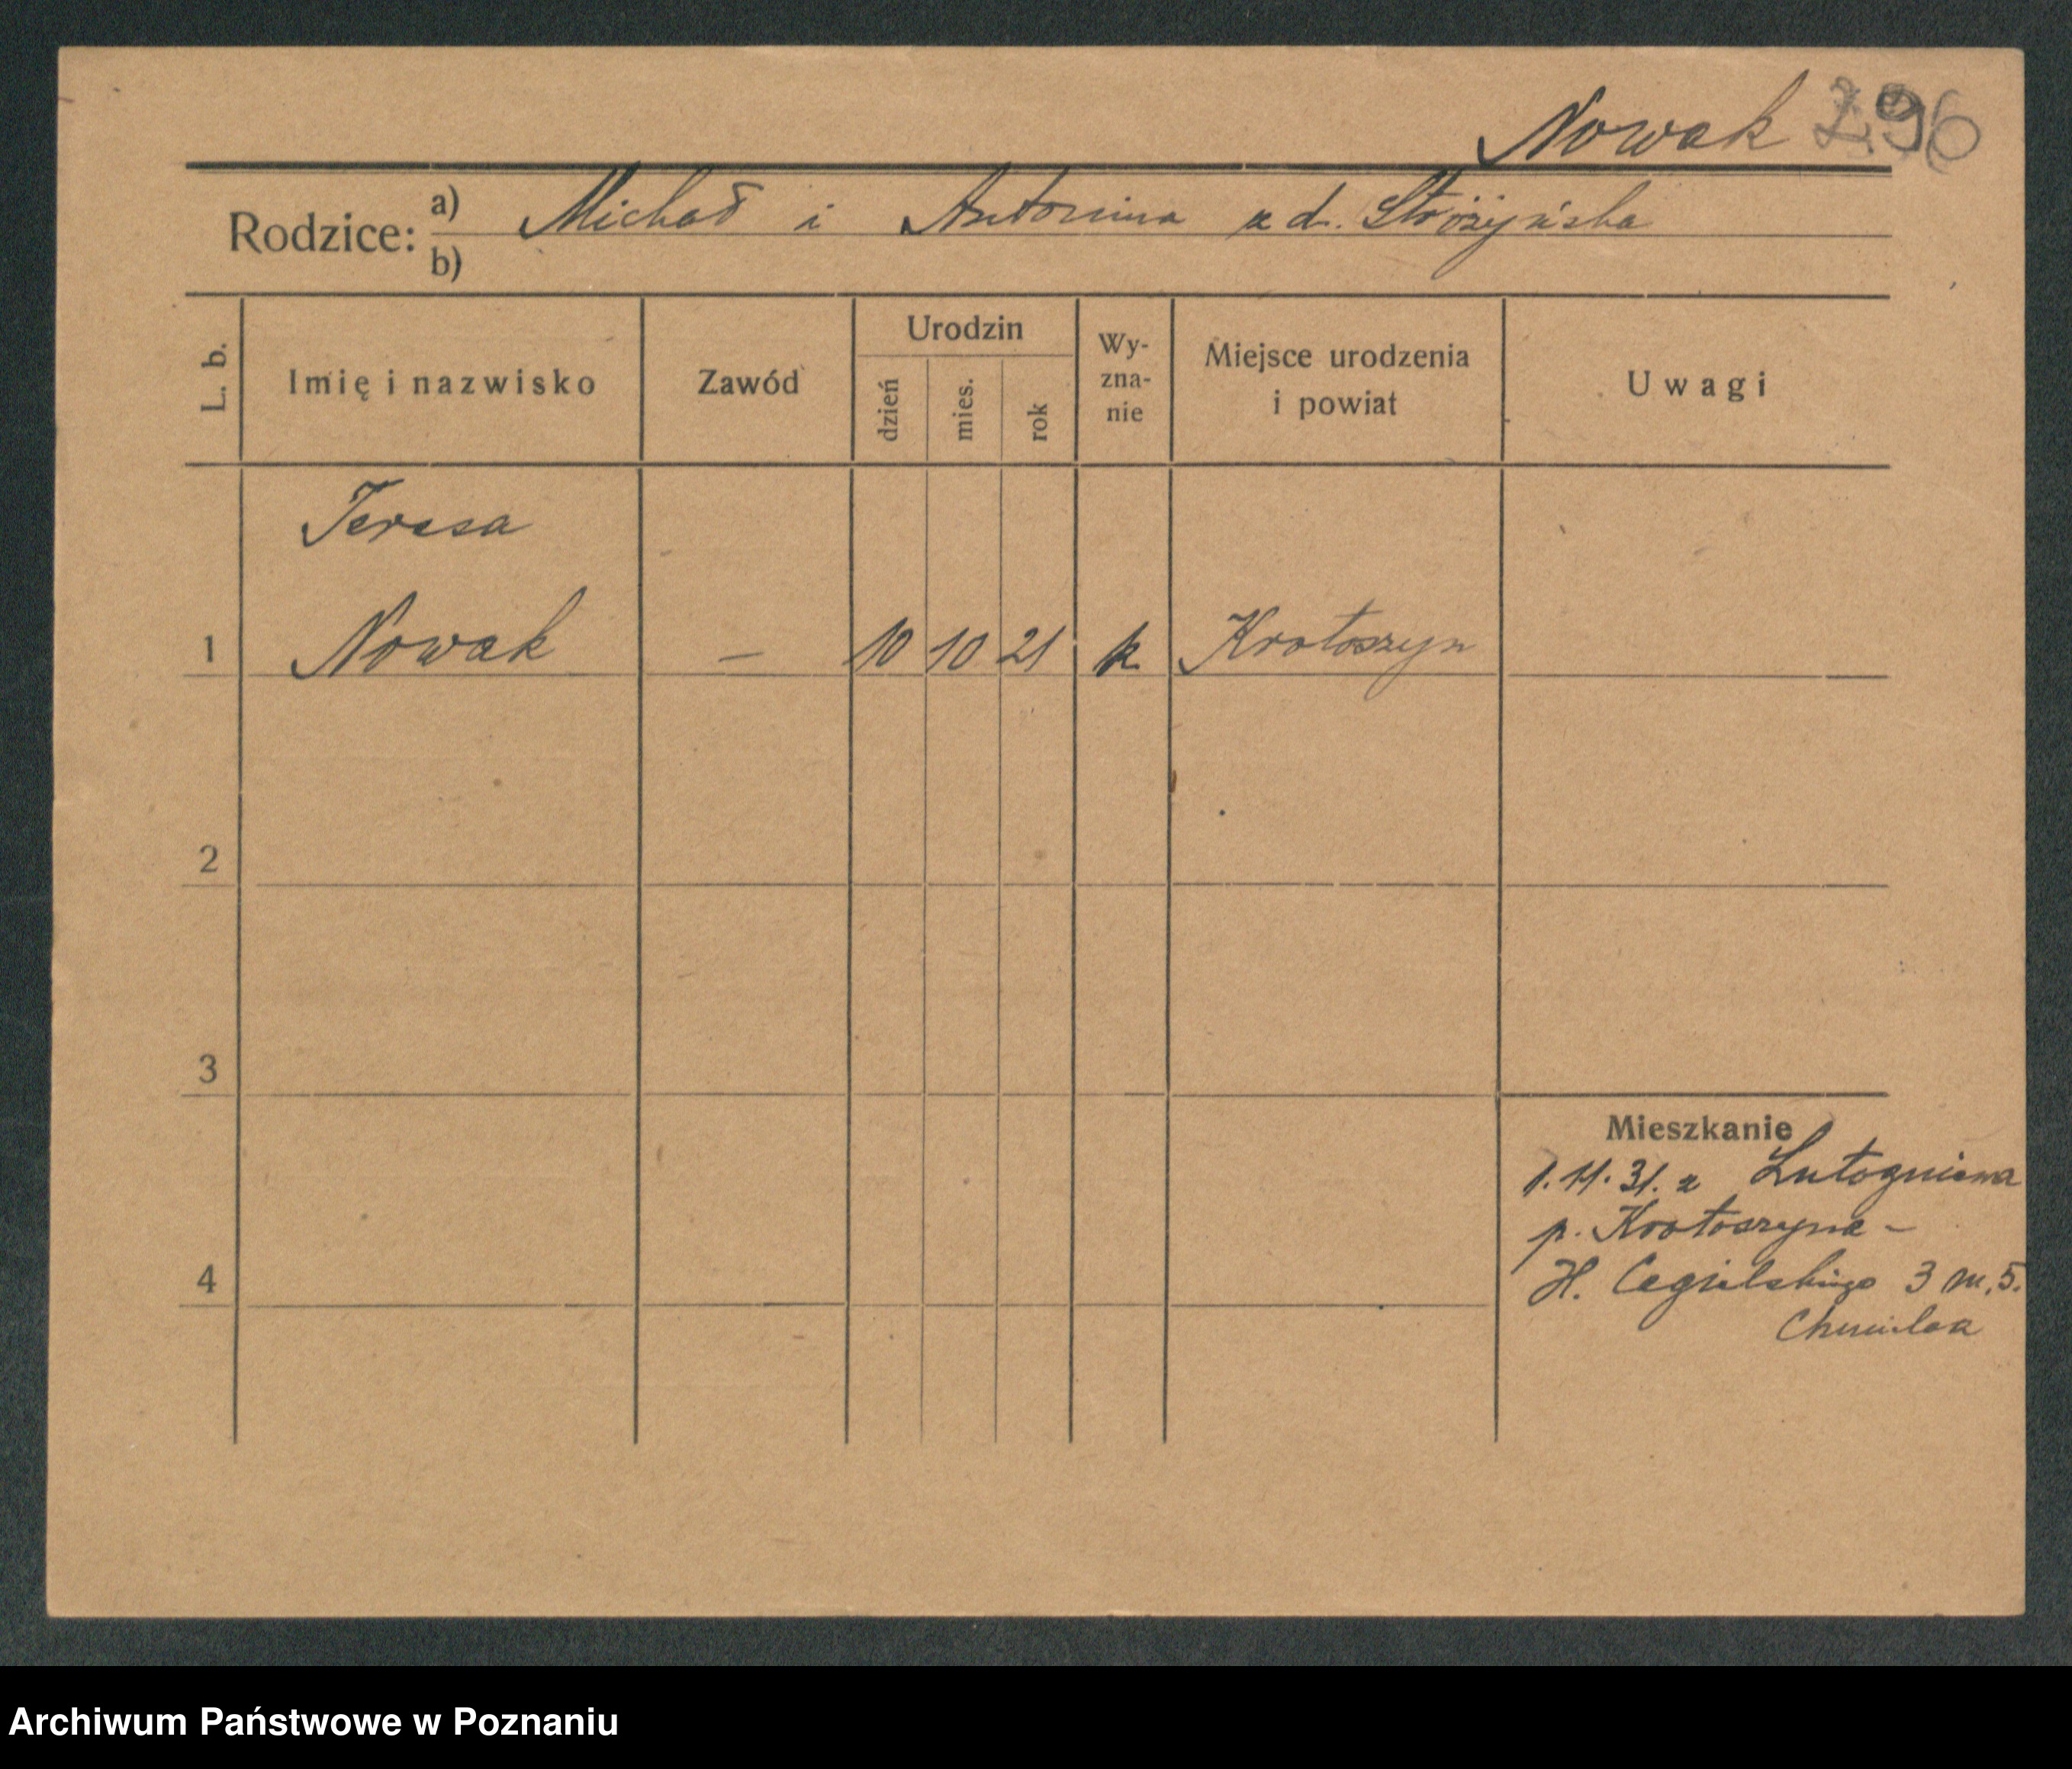 Nowak 296
Rodzice: a) Michał i Antonina z d. Stróżyńska
b)
L. b. Imię i nazwisko Zawód Urodzin dzień mies. rok Wy-zna-nie Miejsce urodzenia i powiat Uwagi
Teresa
1 Nowak – 10 10 21 k Krotoszyn
2
3
Mieszkanie
1.11.31. z Lutogniewa
p. Krotoszyna –
4 H. Cegielskiego 3 m. 5.
Archiwum Państwowe w Poznaniu